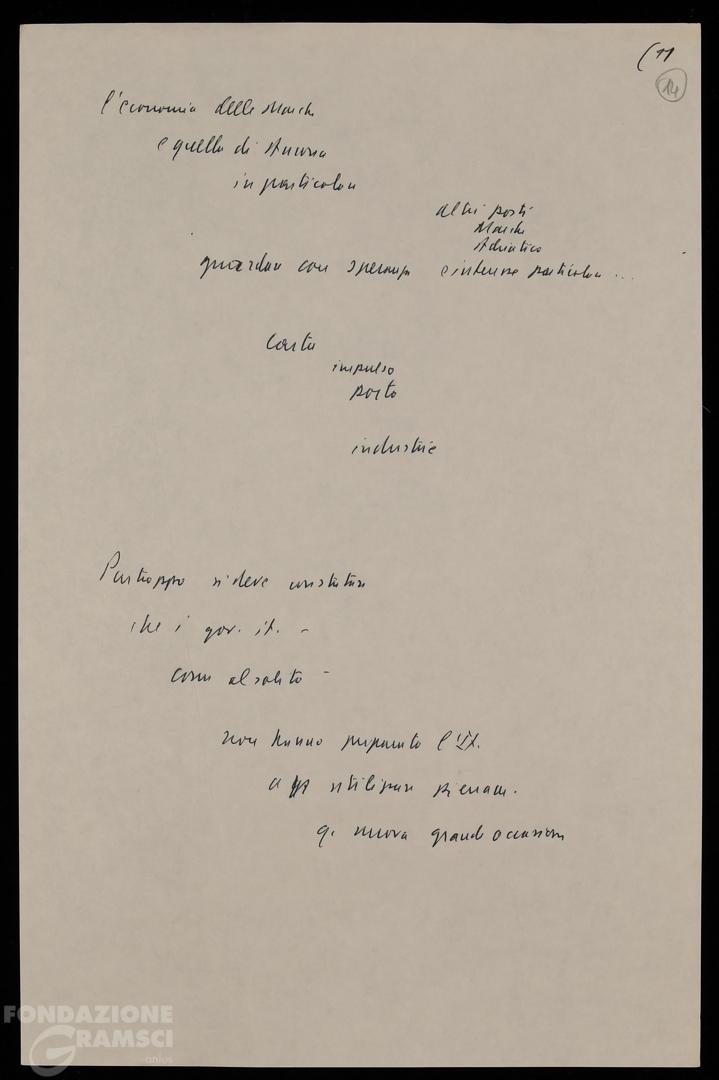 (11
14
l'economia delle Marche
e quella di Ancona
in particolare
altri porti
Marche
Adriatico
guardan con speranza e interesse particolare ...
Certo
impulso
porto
industrie
Purtroppo si deve constatare
che i gov. it. -
come al solito -
non hanno preparato l'It.
a utilizzare pienam.
q. nuova grande occasione
FONDAZIONE
GRAMSCI
onlus